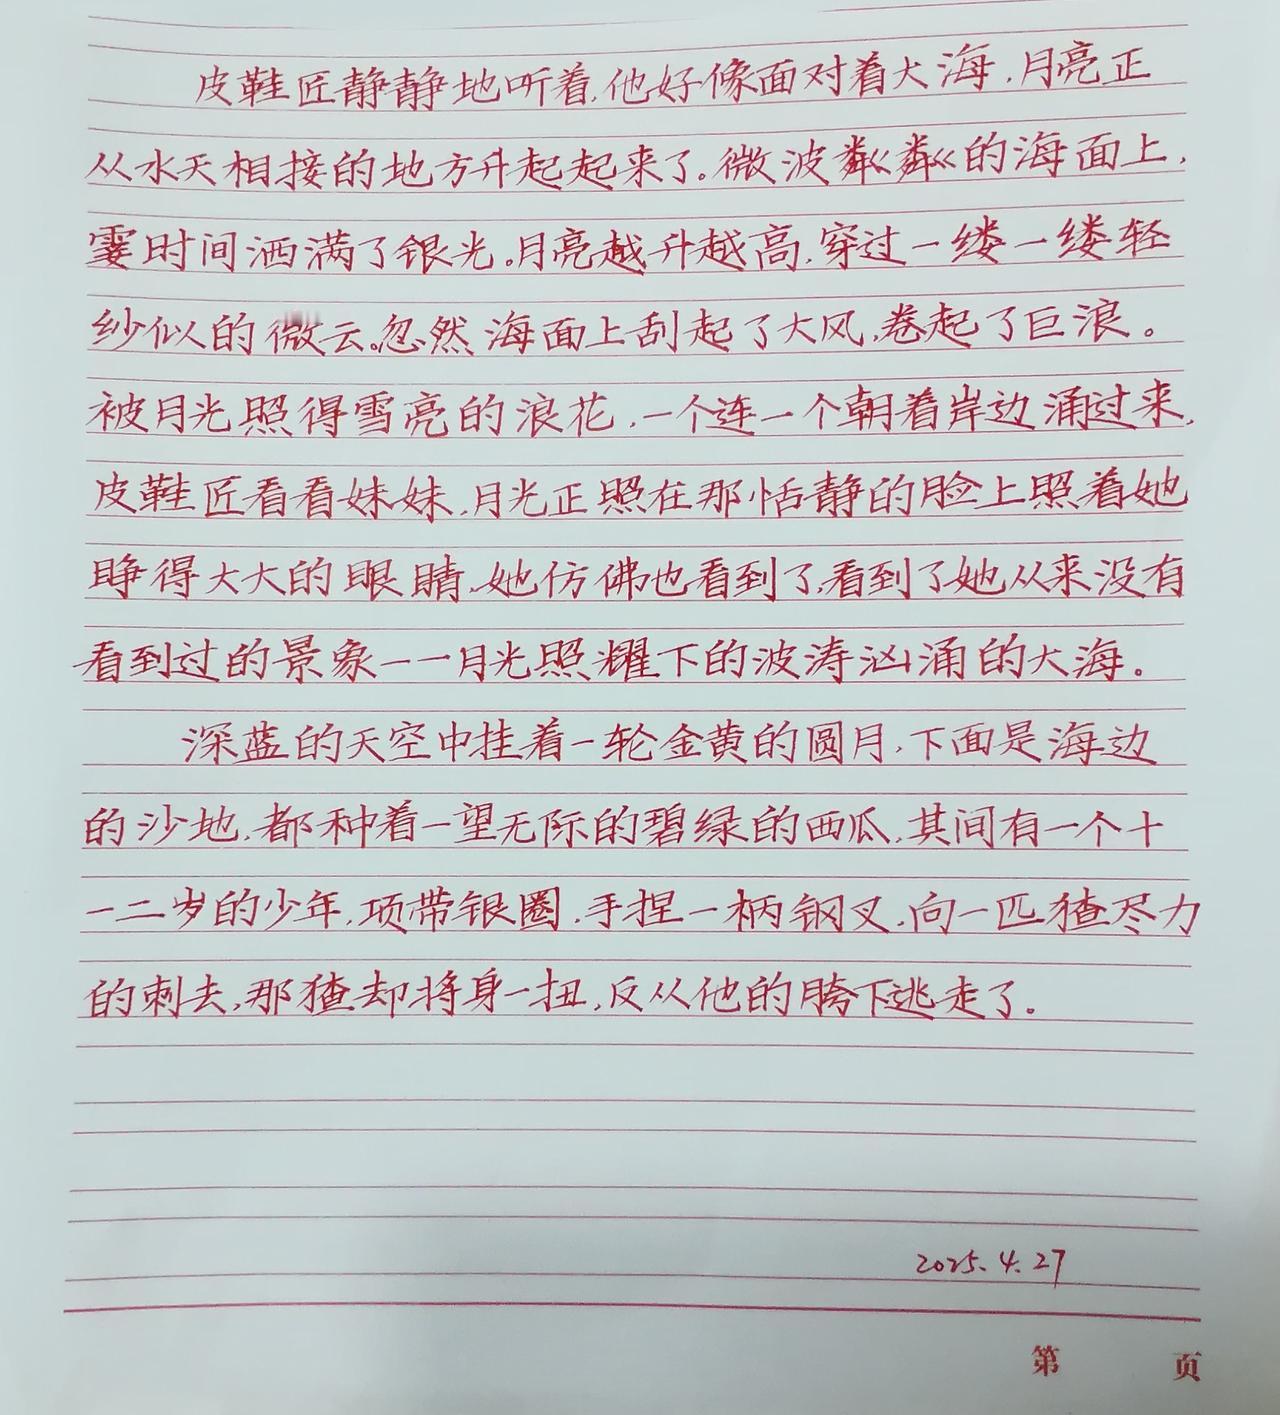 皮鞋匠静静地听着,他好像面对着大海,月亮正
从水天相接的地方升起起来了。微波粼粼的海面上,
霎时间洒满了银光。月亮越升越高,穿过一缕一缕轻
纱似的微云。忽然海面上刮起了大风,卷起了巨浪。
被月光照得雪亮的浪花,一个连一个朝着岸边涌过来,
皮鞋匠看看妹妹,月光正照在那恬静的脸上照着她
睁得大大的眼睛,她仿佛也看到了,看到了她从来没有
看到过的景象——月光照耀下的波涛汹涌的大海。
深蓝的天空中挂着一轮金黄的圆月,下面是海边
的沙地,都种着一望无际的碧绿的西瓜,其间有一个十
一二岁的少年,项带银圈,手捏一柄钢叉,向一匹猹尽力
的刺去,那猹却将身一扭,反从他的胯下逃走了。
2025.4.27
第 页